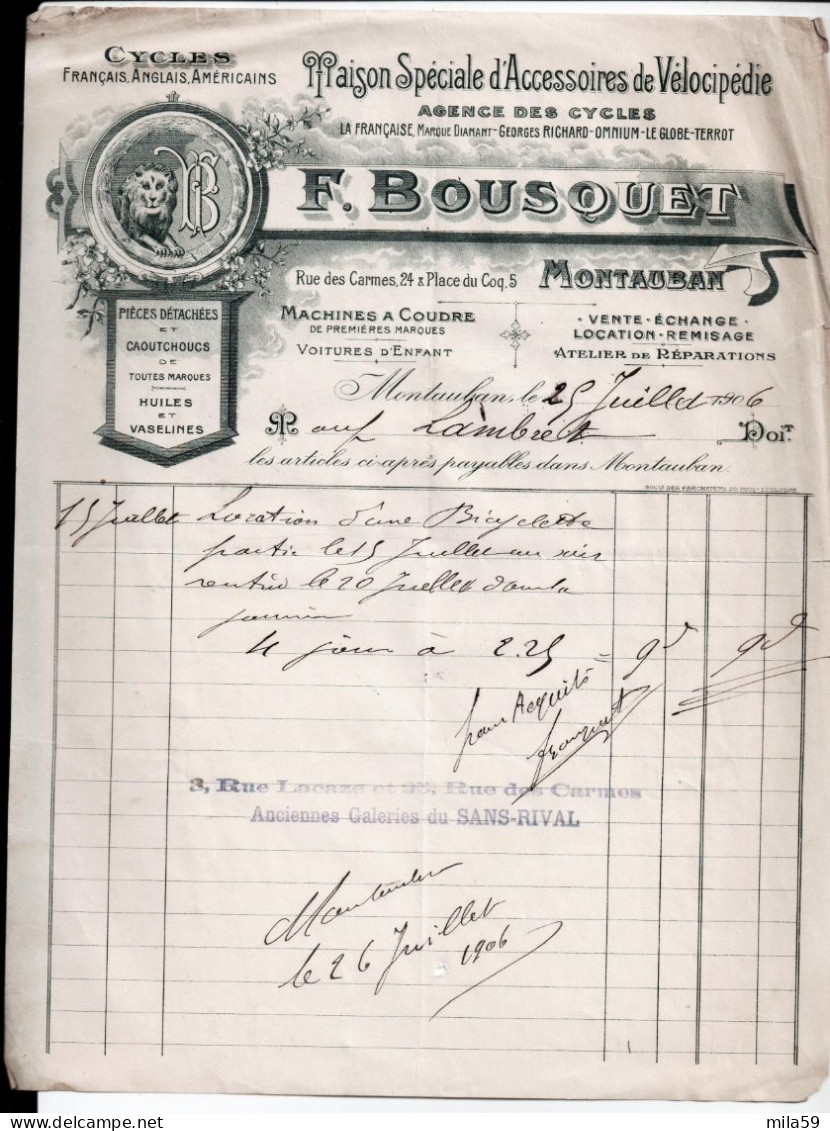 CYCLES
FRANÇAIS, ANGLAIS, AMÉRICAINS
Maison Spéciale d'Accessoires de Vélocipédie
AGENCE DES CYCLES
LA FRANÇAISE, MARQUE DIAMANT-GEORGES RICHARD-OMNIUM-LE GLOBE-TERROT
B
F. BOUSQUET
Rue des Carmes, 24 & Place du Coq, 5 MONTAUBAN
PIÈCES DÉTACHÉES
ET
CAOUTCHOUCS
DE
TOUTES MARQUES
HUILES
ET
VASELINES
MACHINES A COUDRE
DE PREMIÈRES MARQUES
VOITURES D'ENFANT
· VENTE · ÉCHANGE ·
LOCATION · REMISAGE
ATELIER DE RÉPARATIONS
Montauban, le 25 Juillet 1906
M Lambrect Doit
les articles ci-après payables dans Montauban.
15 Juillet Location d'une Bicyclette
partie le 15 Juillet au soir
rentré le 20 Juillet dans la
4 jour à 2.25 = 9
pour Acquits
3, Rue Lacaze et 28, Rue des Carmes
Anciennes Galeries du SANS-RIVAL
Montauban
le 26 Juillet
1906
mila59